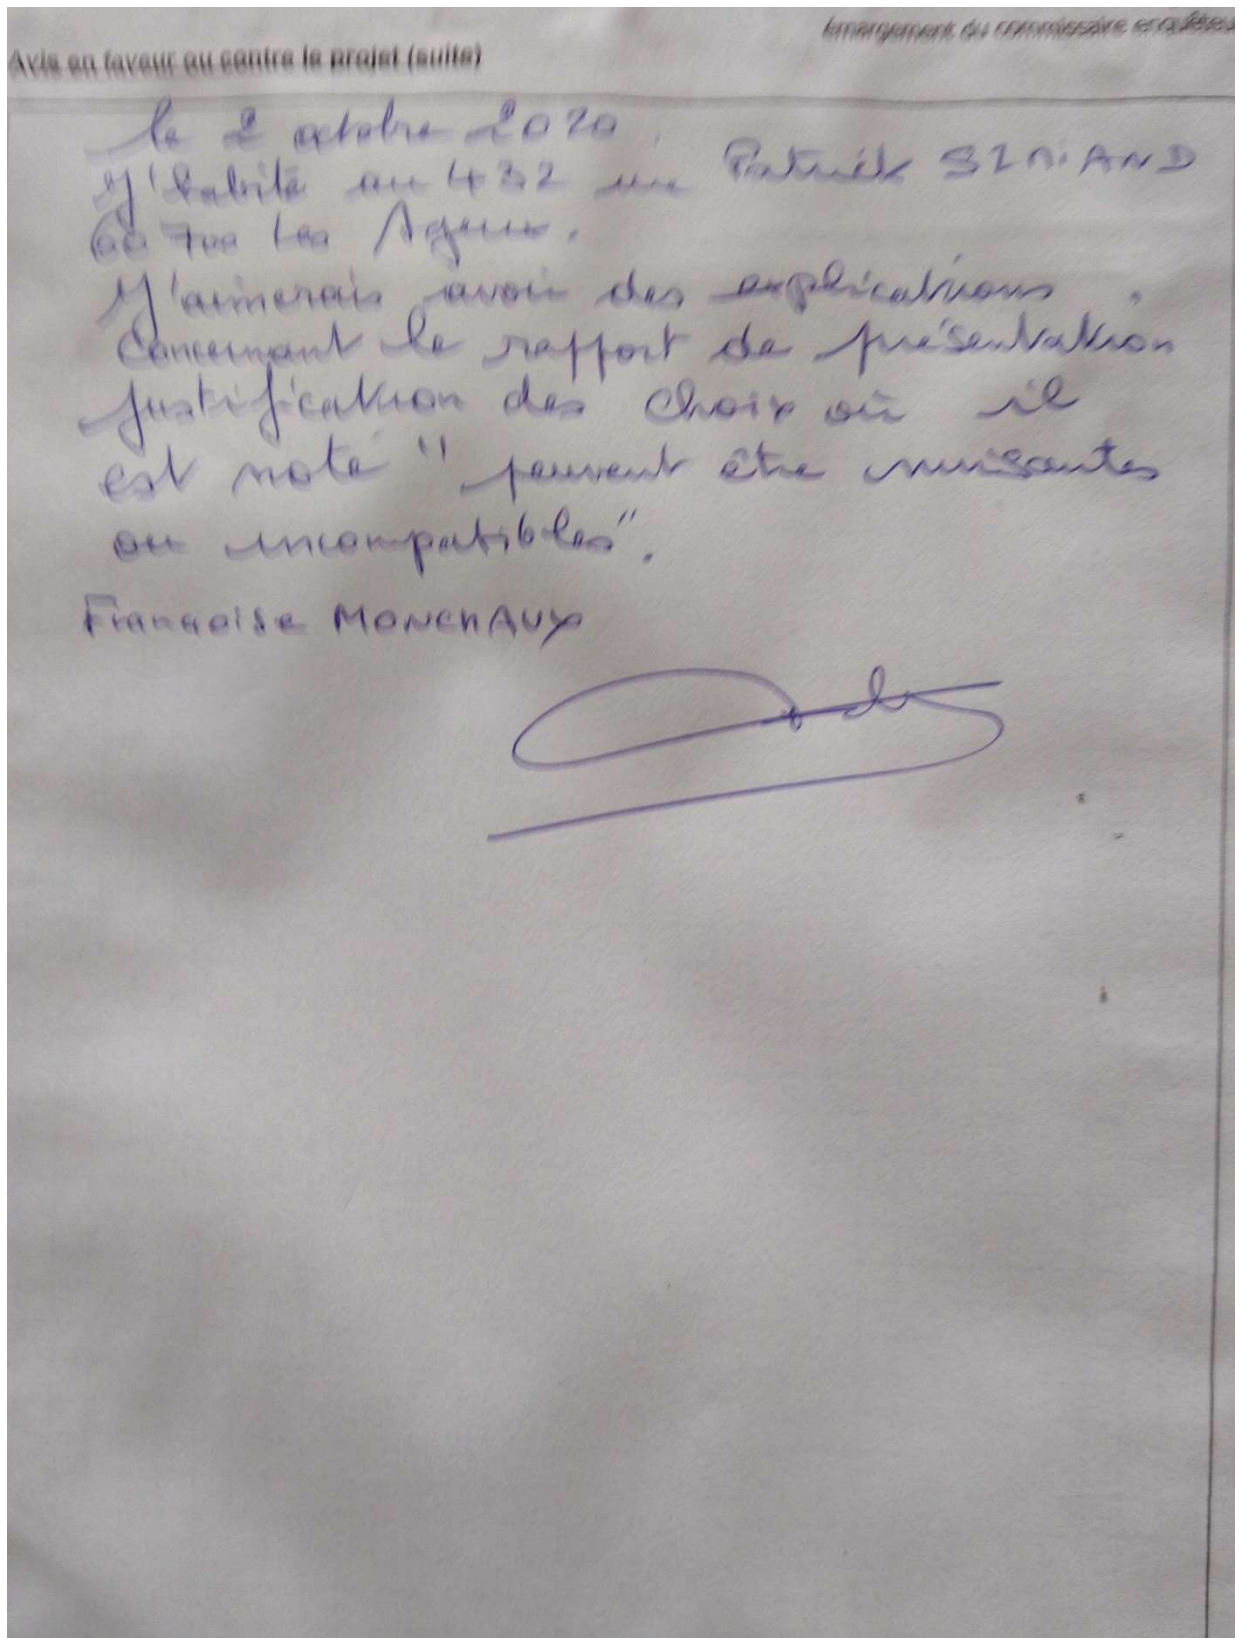 Emargement du commissaire enquêteur
Avis en faveur ou contre le projet (suite)
le 2 octobre 2020.
J'habite au 432 rue Patrick SIMIAND
60700 Les Ageux.
J'aimerais avoir des explications
Concernant le rapport de présentation
justification des choix où il
est noté "peuvent être nuisantes
ou incompatibles".
Françoise MONCHAUX